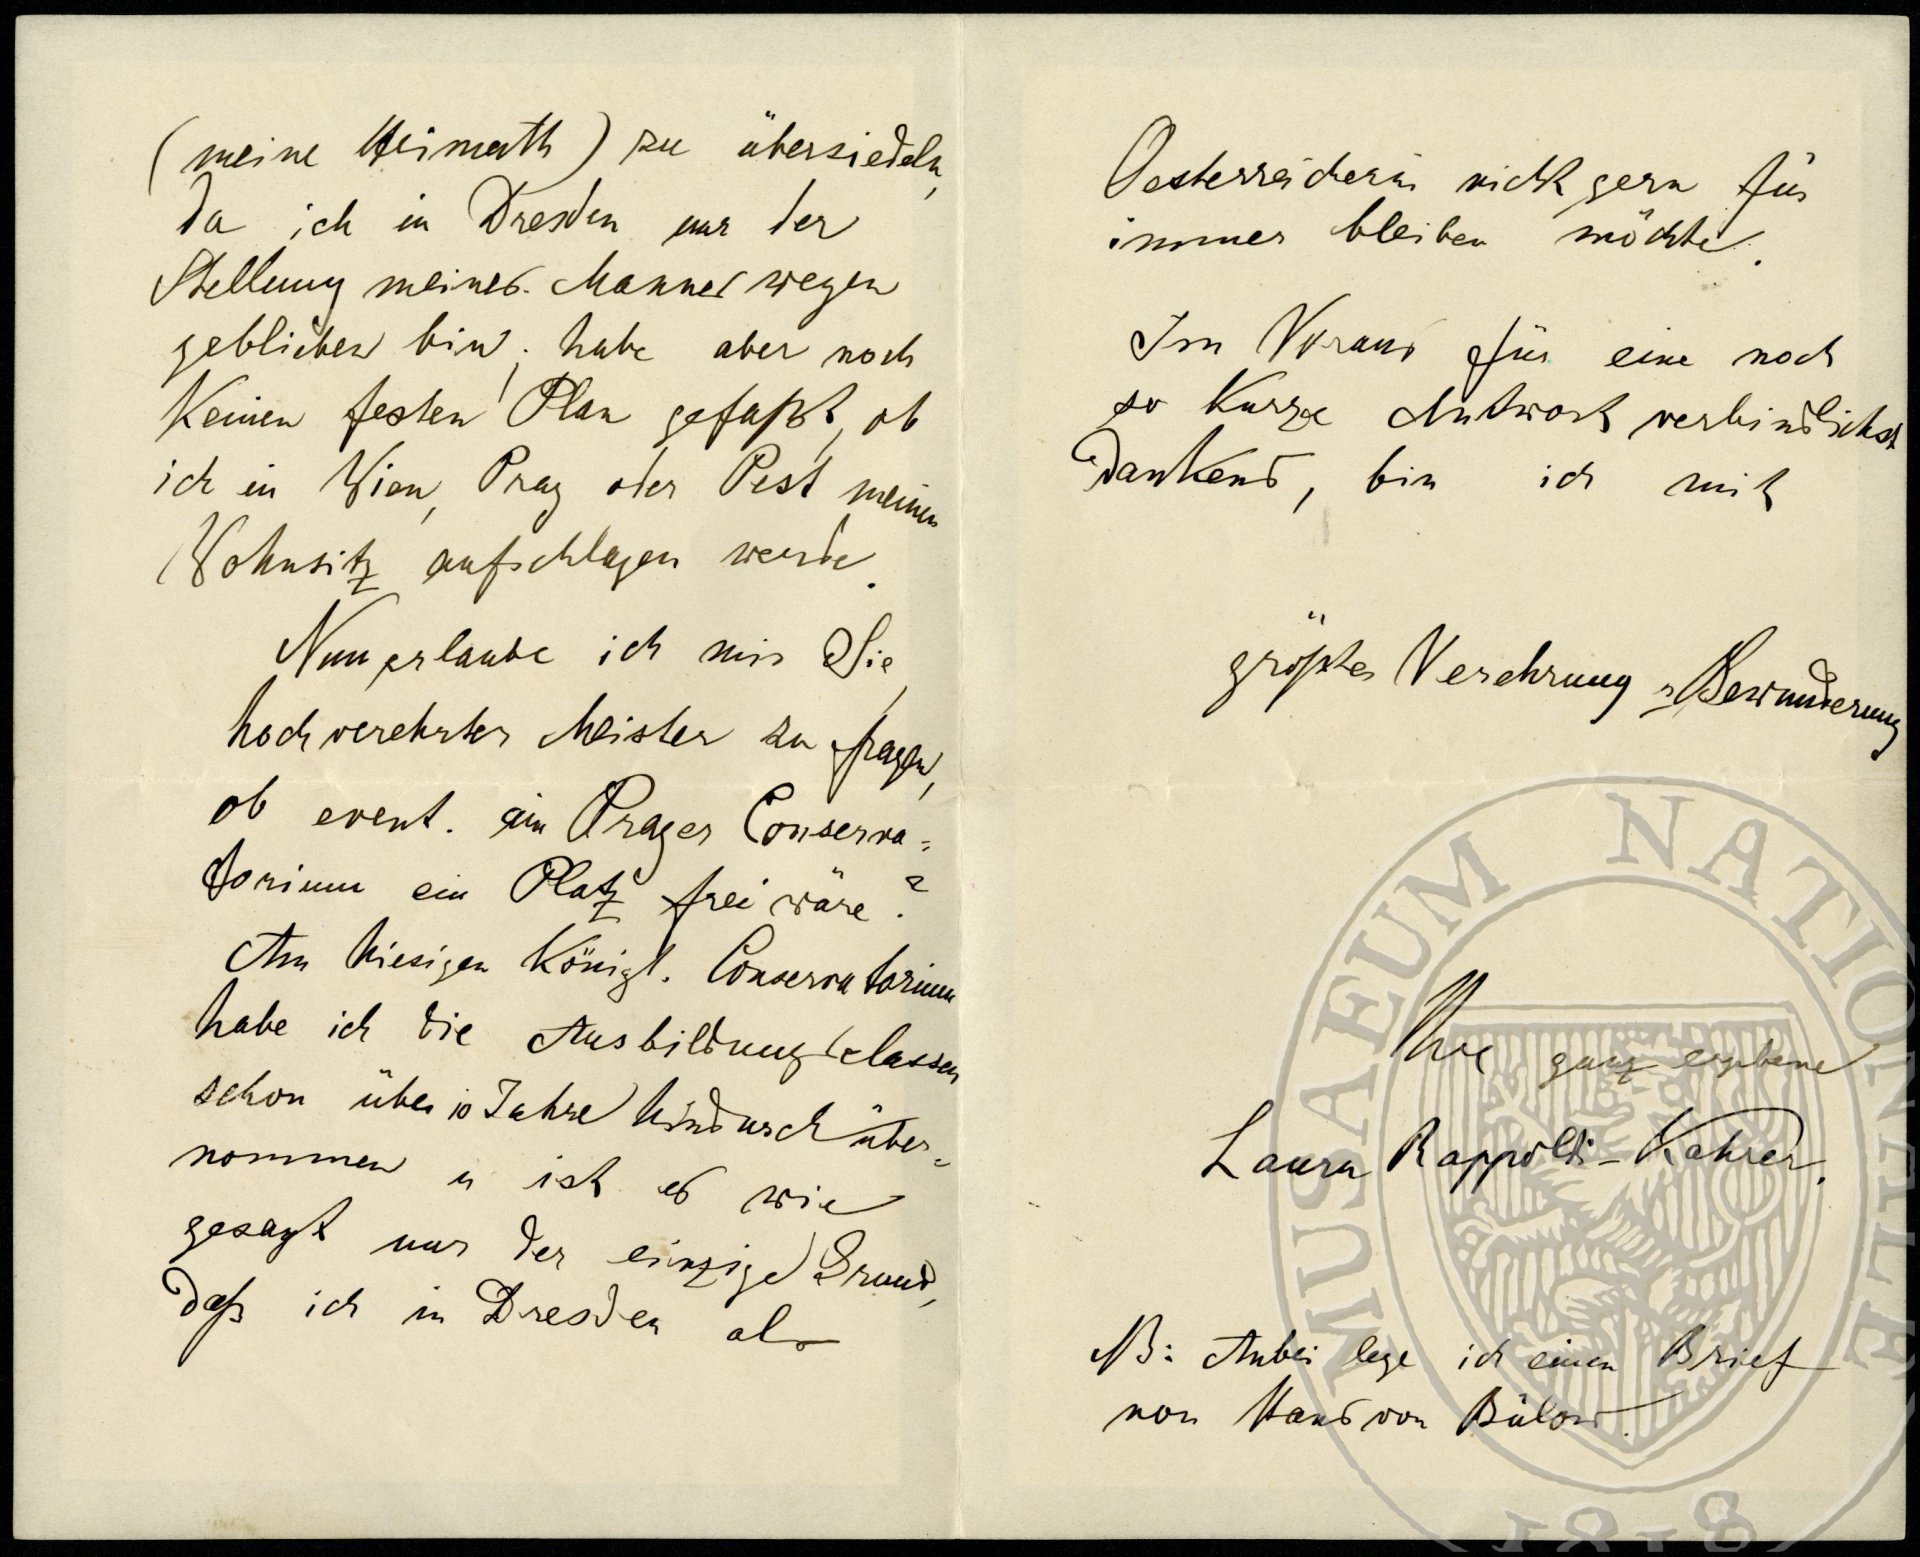 (meine Heimath) zu übersiedeln,
da ich in Dresden nur der
Stellung meines Mannes wegen
geblieben bin, habe aber noch
keinen festen Plan gefaßt, ob
ich in Wien, Prag oder Pest meinen
Wohnsitz aufschlagen werde.
Nun erlaube ich mir Sie,
hochverehrter Meister zu fragen,
ob event. am Prager Conserva=
torium ein Platz frei wäre?
Am hiesigen Königl. Conservatorium
habe ich die Ausbildungsclassen
schon über 10 Jahre hindurch über=
nommen u ist es wie
gesagt nur der einzige Grund,
daß ich in Dresden als
Oesterreicherin nicht gern für
immer bleiben möchte.
Im Voraus für eine noch
so kurze Antwort verbindlichst
dankend, bin ich mit
größter Verehrung u Bewunderung
Ihre ganz ergebene
Laura Rappoldi-Kahrer.
NB: Anbei lege ich einen Brief
von Hans von Bülow.
MUSAEUM NATIONALE
1818